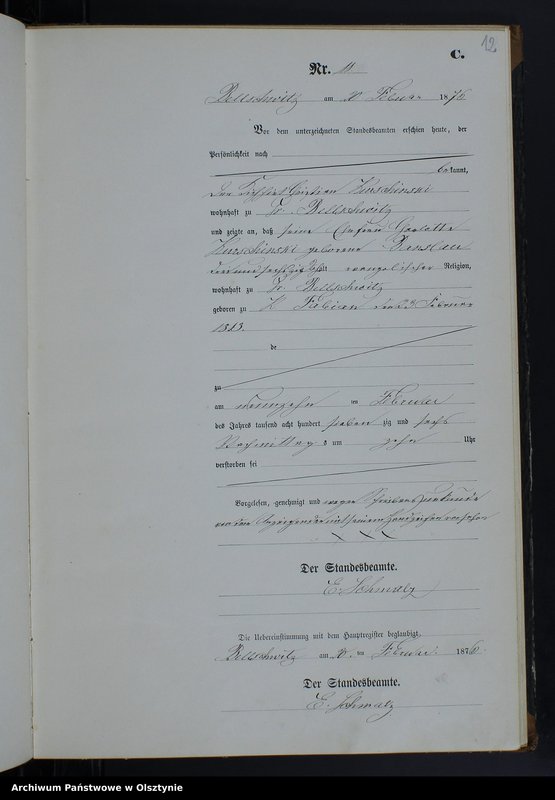 12
C.
Nr. 11
Bellschwitz am 20 Februar 1876
Vor dem unterzeichneten Standesbeamten erschien heute, der
Persönlichkeit nach
bekannt,
der Christian Kuschinski
wohnhaft zu Gr. Bellschwitz
und zeigte an, daß seine Ehefrau Charlotte
Kuschinski geborene
alt evangelischer Religion,
wohnhaft zu Gr. Bellschwitz
geboren zu Februar
1813.
de
zu
am neunzehn ten Februar
des Jahres tausend acht hundert sieben zig und sechs
Nachmittags um zehn Uhr
verstorben sei
Vorgelesen, genehmigt und wegen
von dem Anzeigenden mit seinem Handzeichen versehen
XXX
Der Standesbeamte.
E. Schmalz
Die Uebereinstimmung mit dem Hauptregister beglaubigt,
Bellschwitz am 20. ten Februar 1876.
Der Standesbeamte.
E. Schmalz
Archiwum Państwowe w Olsztynie